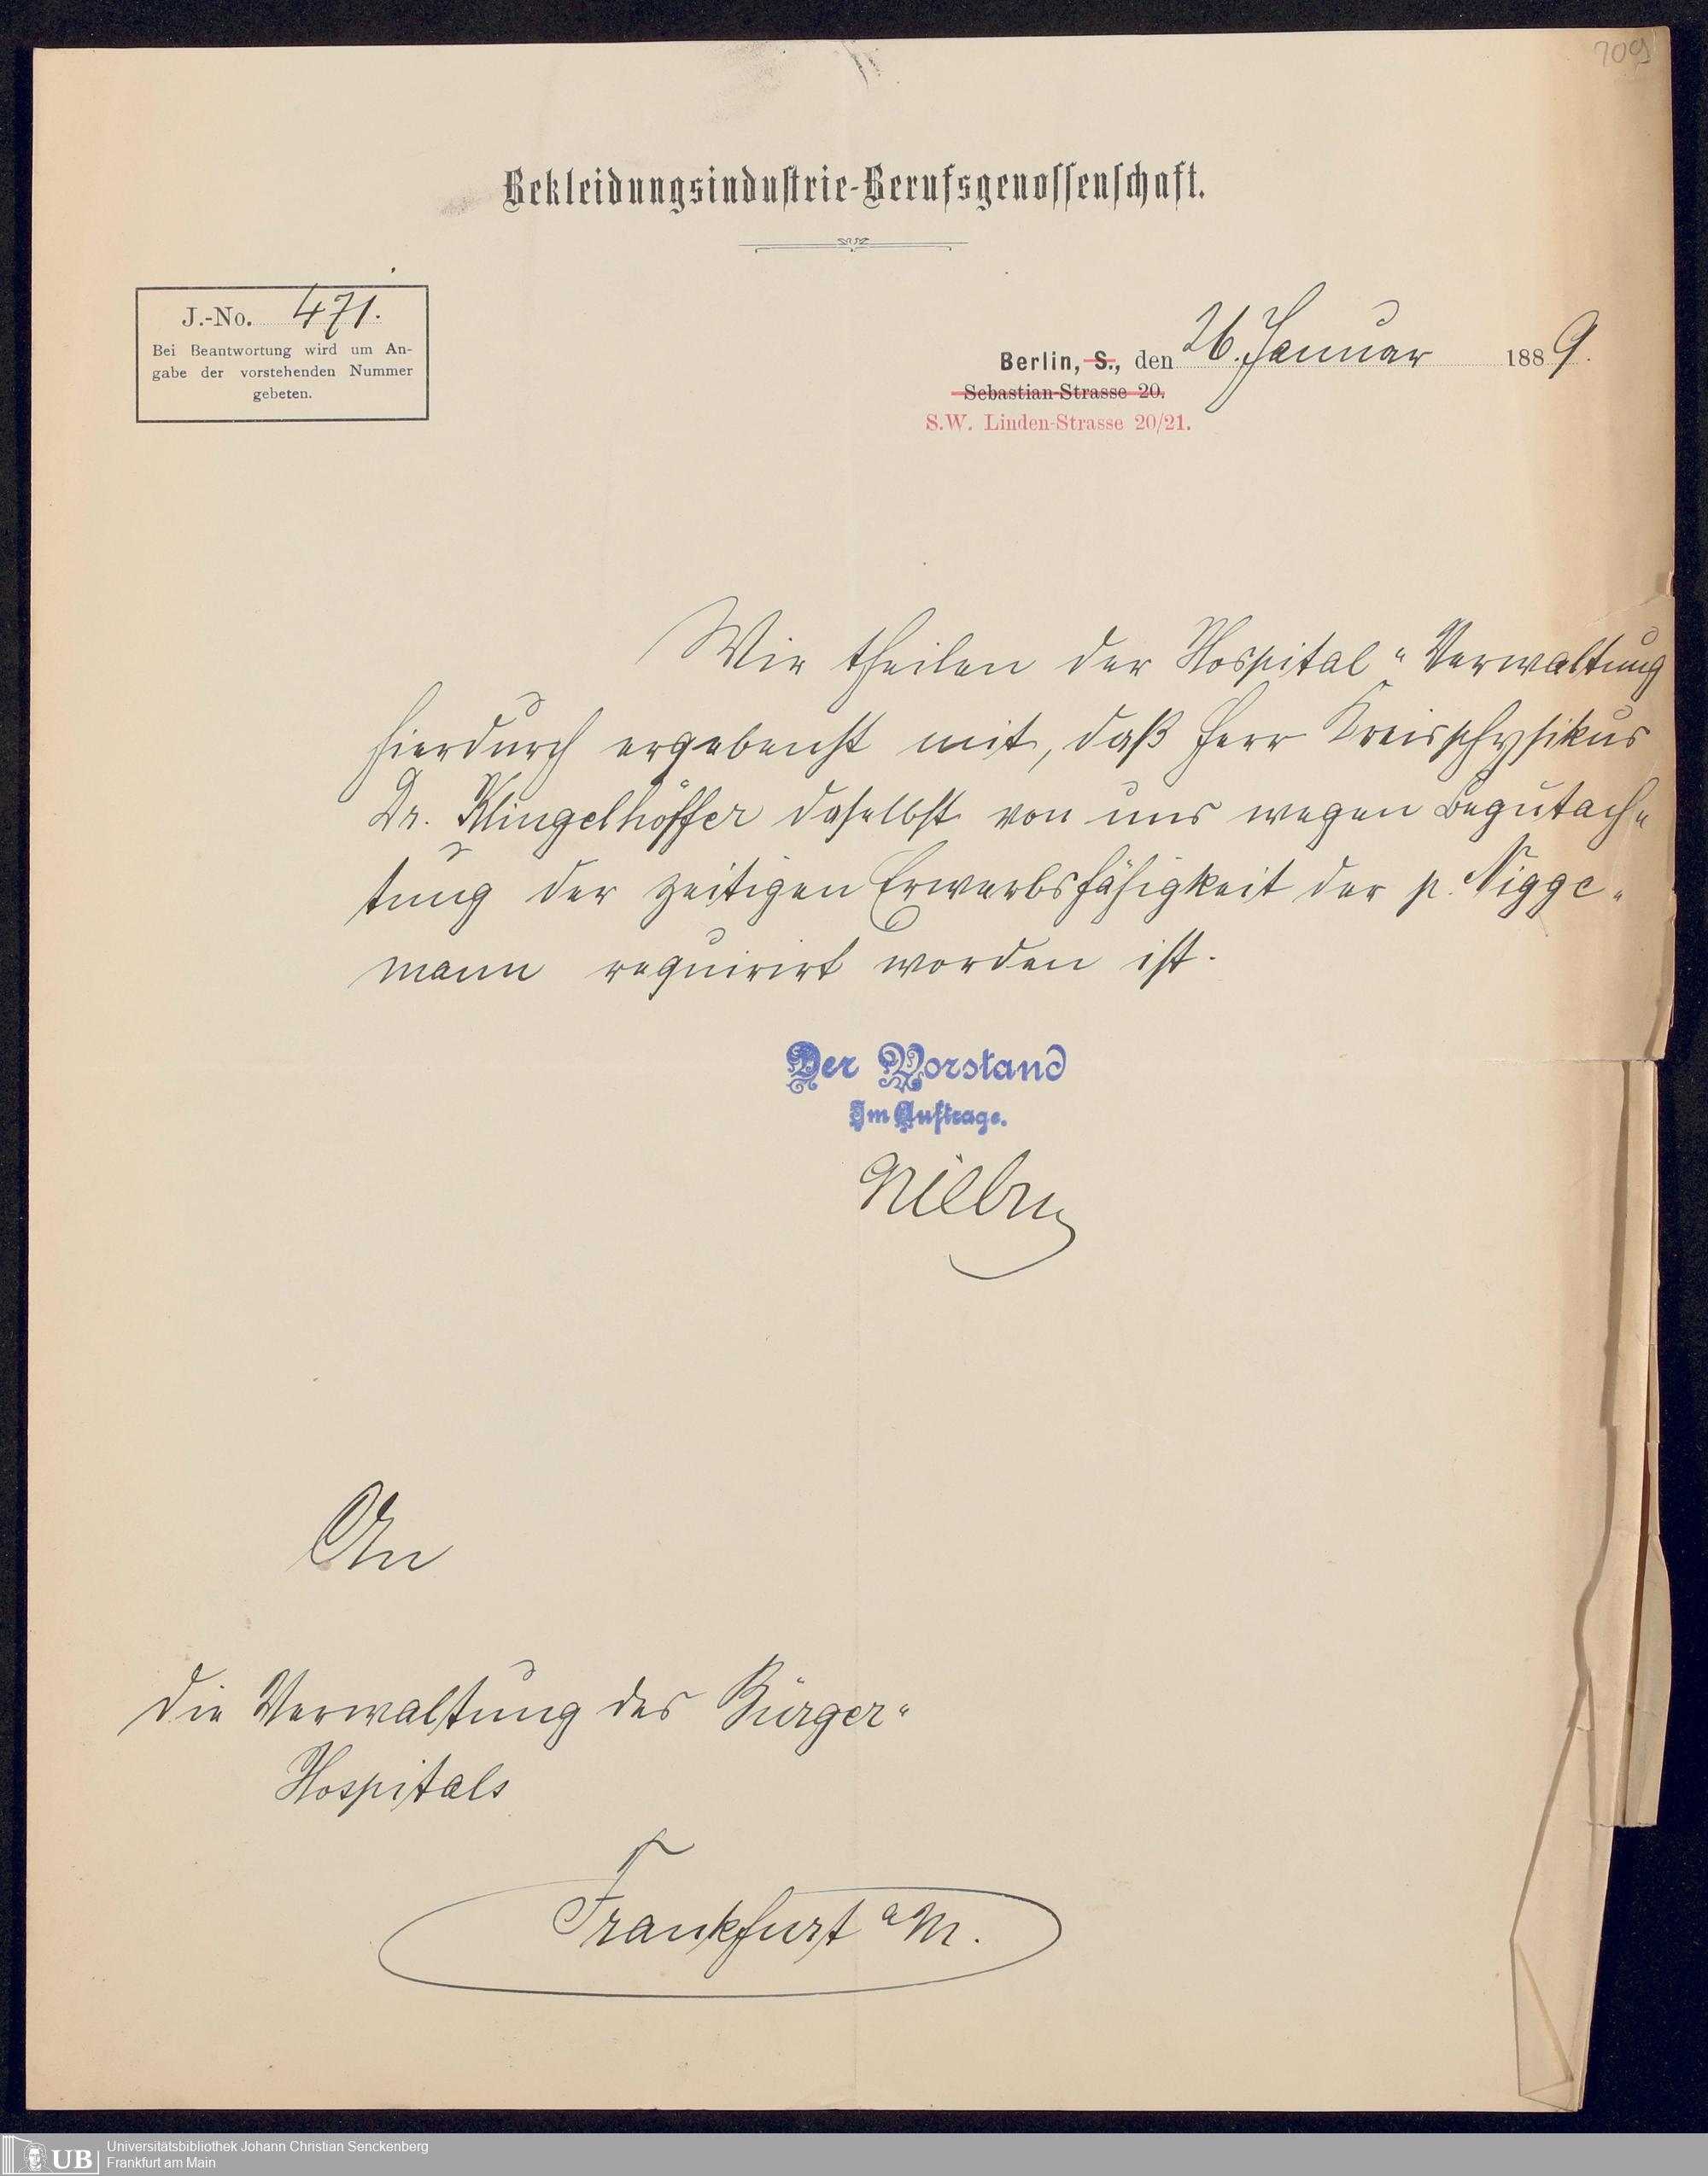 709
Bekleidungsindustrie-Berufsgenossenschaft.
J.-No. 471.
Bei Beantwortung wird um An-
gabe der vorstehenden Nummer
gebeten.
Berlin, S., den 26. Januar 1889.
Sebastian-Strasse 20.
S.W. Linden-Strasse 20/21.
Wir theilen der Hospital-Verwaltung
hierdurch ergebenst mit, daß Herr Kreisphysikus
Dr. Klingelhöffer daselbst von uns wegen Begutach-
tung der zeitigen Erwerbsfähigkeit der p. Nigge-
mann requirirt worden ist.
Der Vorstand
Im Auftrage.
An
die Verwaltung des Bürger-
Hospitals
Frankfurt a M.
UB
Universitätsbibliothek Johann Christian Senckenberg
Frankfurt am Main